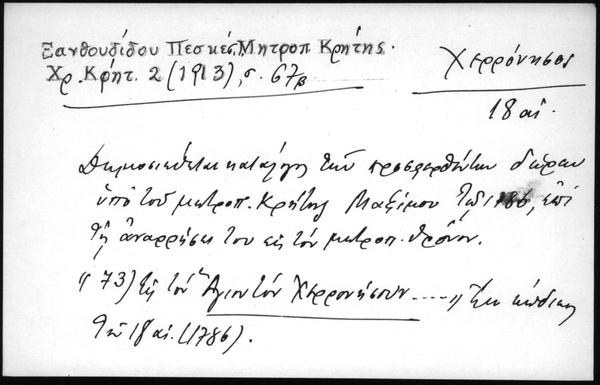 Ξανθουδίδου Πεσκέσ. Μητροπ. Κρήτης.
Χρ. Κρήτ. 2 (1913), σ. 67β
Χερρόνησος
18 αἰ.
Δημοσιεύεται κατάλογος τῶν προσφερθέντων δώρων
ὑπὸ τοῦ μητροπ. Κρήτης Μαξίμου τῷ 1786, ἐπὶ
τῇ ἀναρρήσει του εἰς τὸν μητροπ. θρόνον.
" 73) Εἰς τὸν Ἅγιον τὸν Χερρονήσου ....." Ἐκ κώδικος
τοῦ 18 αἰ. (1786).